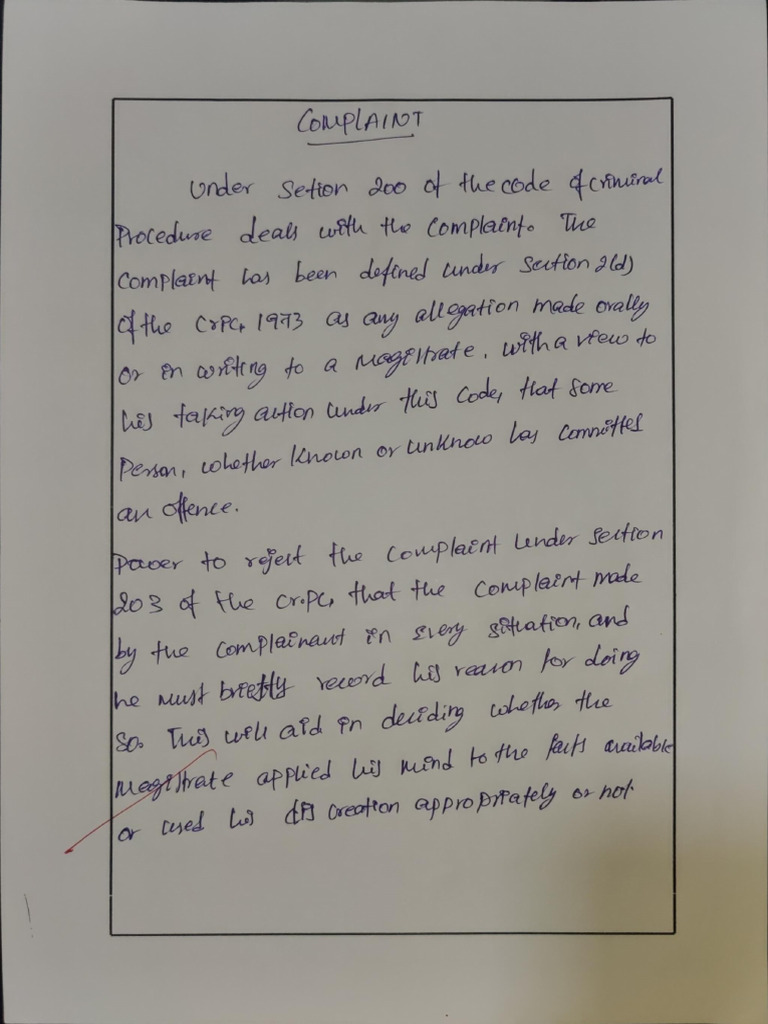 COMPLAINT
Under Setion 200 of the code of criminal
Procedure deals with the Complaint. The
Complaint has been defined under Section 2(d)
of the CrPC, 1973 as any allegation made orally
or in writing to a Magistrate, with a view to
his taking action under this Code, that some
Person, whether known or unknow has committed
an offence.
Power to reject the Complaint under Section
203 of the Cr.PC, that the Complaint made
by the Complainant in every situation, and
he must briefly record his reason for doing
so. This will aid in deciding whether the
Magistrate applied his mind to the facts available
or used his discreation appropriately or not.